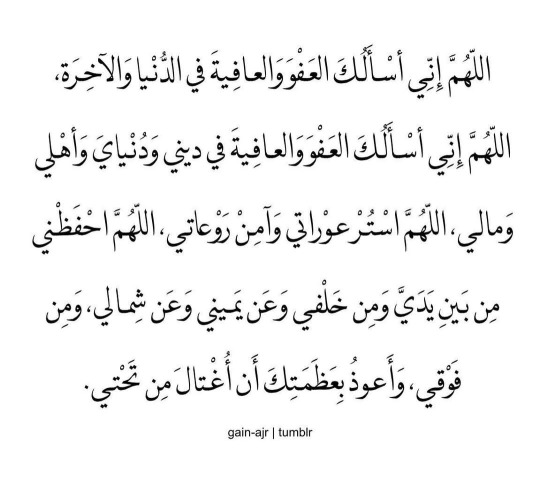 اللّهُمَّ إِنِّي أسْأَلُكَ العَفْوَ وَالعافِيةَ في الدُّنْيا وَالآخِرَة،
اللّهُمَّ إِنِّي أسْأَلُكَ العَفْوَ وَالعافِيةَ في ديني وَدُنْيايَ وَأهْلي
وَمالي، اللّهُمَّ اسْتُرْ عوْراتي وَآمِنْ رَوْعاتي، اللّهُمَّ احْفَظْني
مِن بَينِ يَدَيَّ وَمِن خَلْفي وَعَن يَميني وَعَن شِمالي، وَمِن
فَوْقي، وَأَعوذُ بِعَظَمَتِكَ أَن أُغْتالَ مِن تَحْتي.
gain-ajr | tumblr